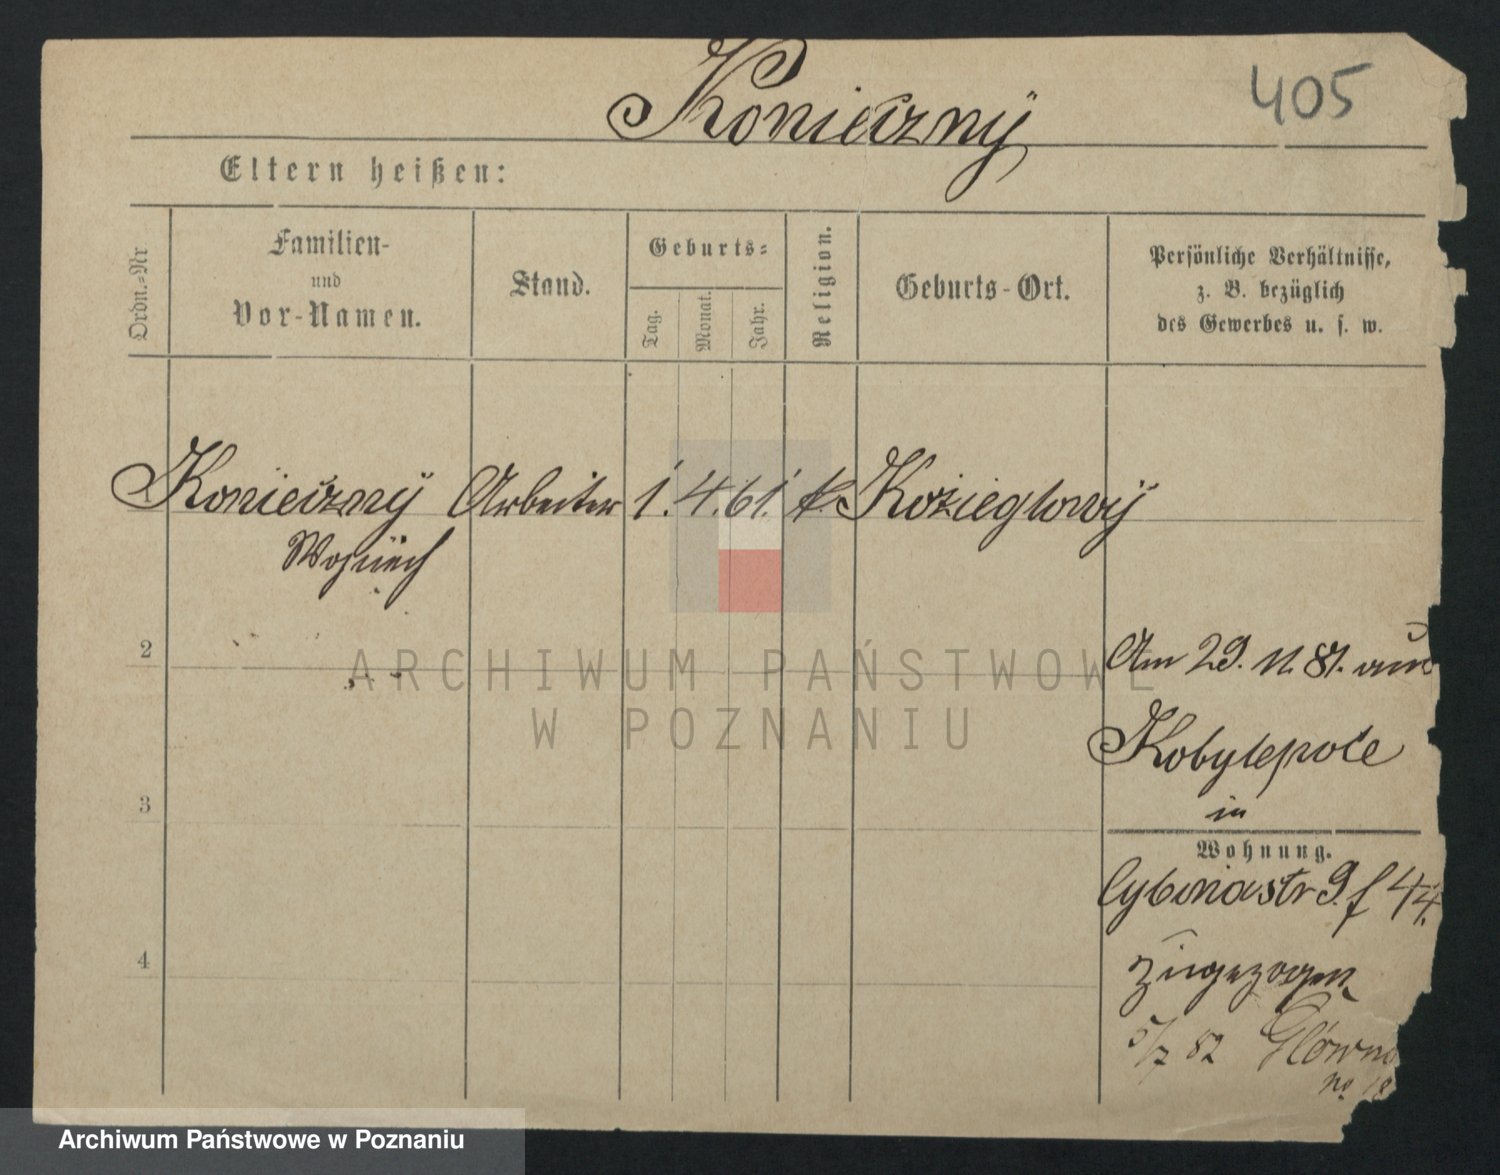 Konieczny
405
Eltern heißen:
Ordn.-Nr
Familien-
und
Vor-Namen.
Stand.
Geburts-
Tag.
Monat.
Jahr.
Religion.
Geburts-Ort.
Persönliche Verhältnisse,
z. B. bezüglich
des Gewerbes u. s. w.
Konieczny Arbeiter 1. 4. 61. k. Kozieglowy
Wojciech
2
3
4
Am 29. 11. 81. aus
Kobylepole
in
Wohnung.
Cybinastr 9. f 44.
zugezogen
5/7 82 Glówno
No 18
ARCHIWUM PAŃSTWOWE
W POZNANIU
Archiwum Państwowe w Poznaniu